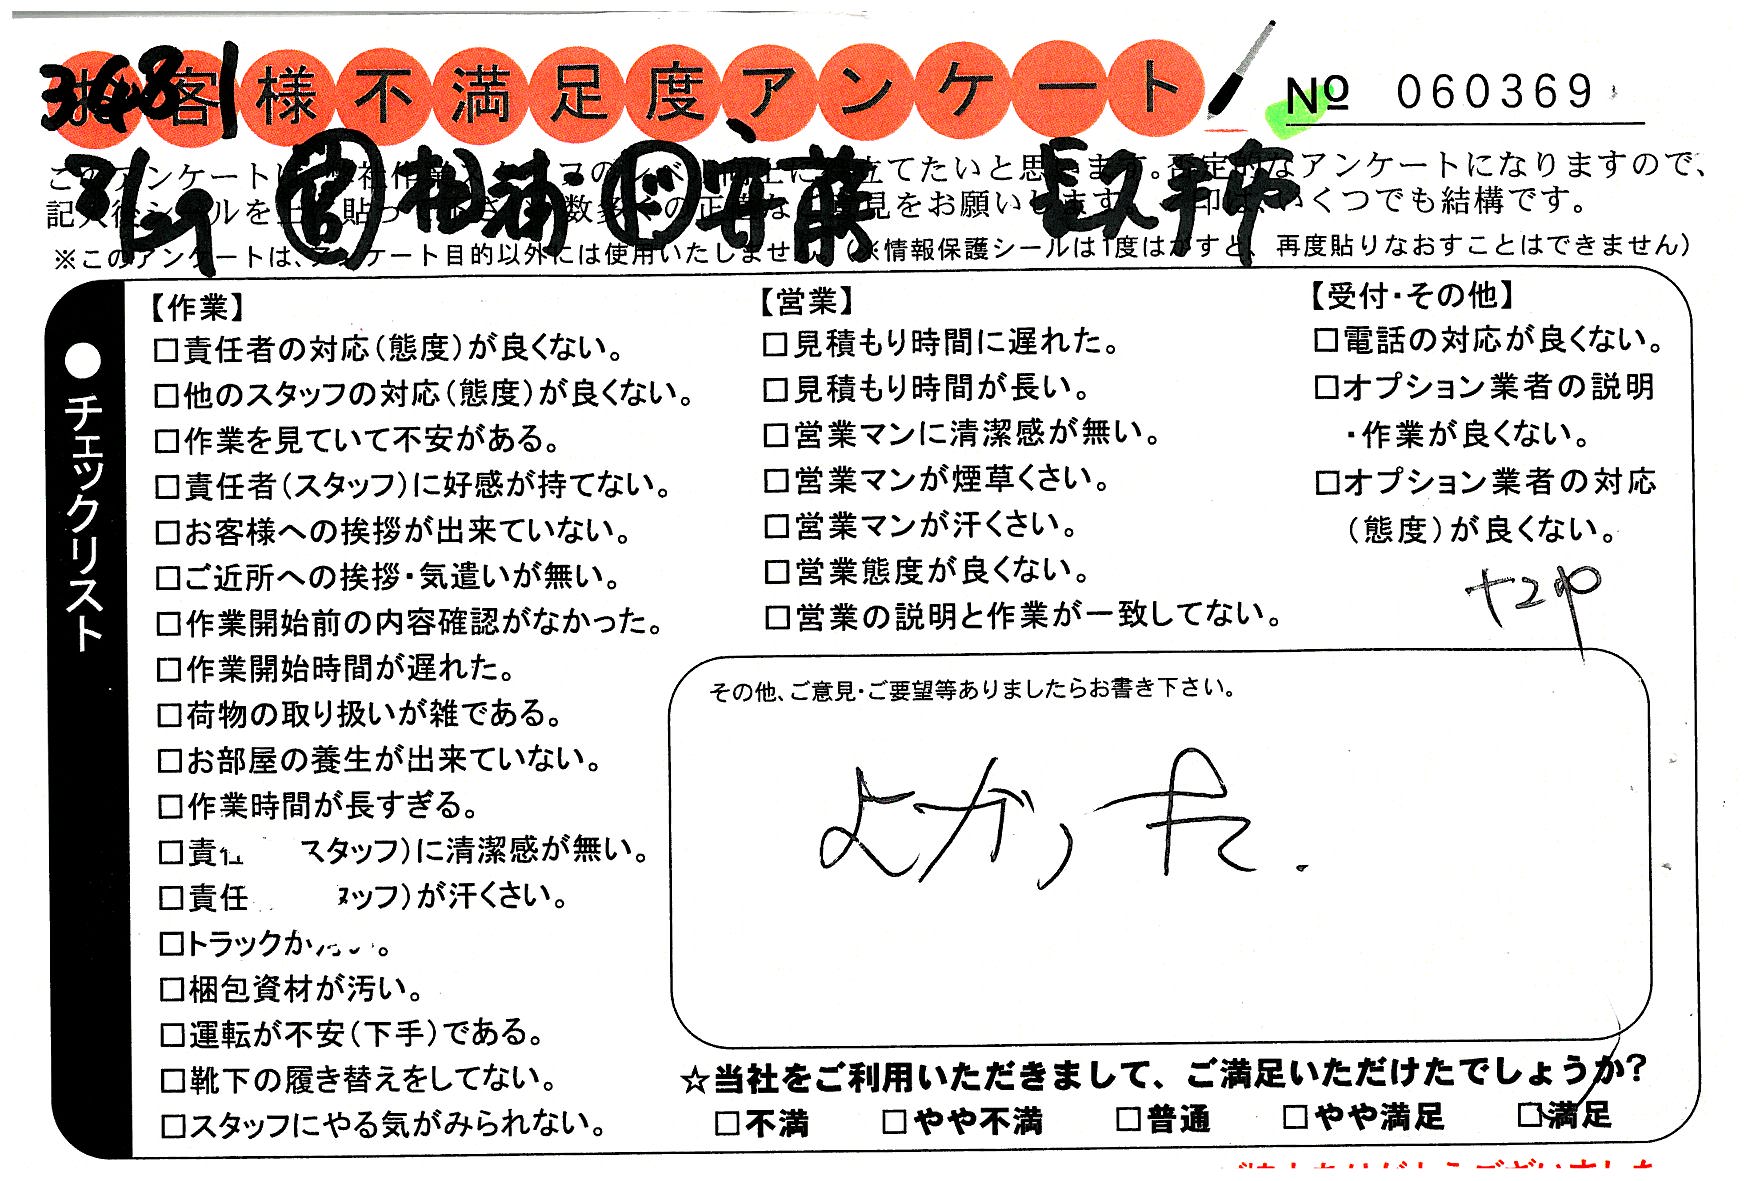 お客様不満足度アンケート
No 060369
3681
このアンケートは、 立てたいと思います。否定的なアンケートになりますので、
記入後シールを 貼っ 数多くの正直なご意見をお願いします 印は、いくつでも結構です。
※このアンケートは、アンケート目的以外には使用いたしません。(※情報保護シールは1度はがすと、再度貼りなおすことはできません)
●チェックリスト
【作業】
□責任者の対応(態度)が良くない。
□他のスタッフの対応(態度)が良くない。
□作業を見ていて不安がある。
□責任者(スタッフ)に好感が持てない。
□お客様への挨拶が出来ていない。
□ご近所への挨拶・気遣いが無い。
□作業開始前の内容確認がなかった。
□作業開始時間が遅れた。
□荷物の取り扱いが雑である。
□お部屋の養生が出来ていない。
□作業時間が長すぎる。
□責任 スタッフ)に清潔感が無い。
□責任 タッフ)が汗くさい。
□トラックが 。
□梱包資材が汚い。
□運転が不安(下手)である。
□靴下の履き替えをしてない。
□スタッフにやる気がみられない。
【営業】
□見積もり時間に遅れた。
□見積もり時間が長い。
□営業マンに清潔感が無い。
□営業マンが煙草くさい。
□営業マンが汗くさい。
□営業態度が良くない。
□営業の説明と作業が一致してない。
【受付・その他】
□電話の対応が良くない。
□オプション業者の説明
・作業が良くない。
□オプション業者の対応
(態度)が良くない。
+2P
その他、ご意見・ご要望等ありましたらお書き下さい。
よかった.
☆当社をご利用いただきまして、ご満足いただけたでしょうか?
□不満 □やや不満 □普通 □やや満足 □満足